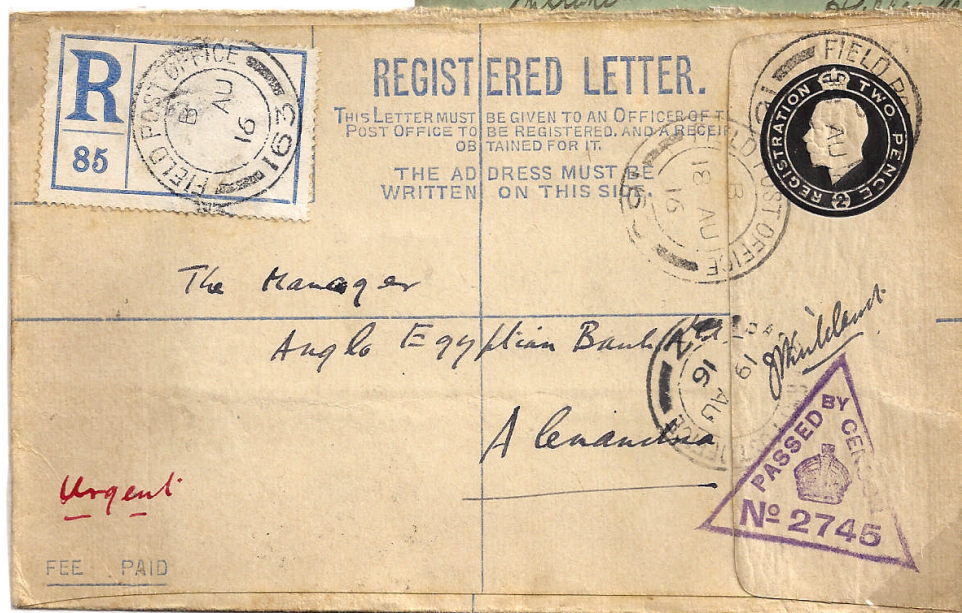 R
85
FIELD POST OFFICE
B
AU
16
163
REGISTERED LETTER.
THIS LETTER MUST BE GIVEN TO AN OFFICER OF T
POST OFFICE TO BE REGISTERED, AND A RECEIP
OBTAINED FOR IT.
THE ADDRESS MUST BE
WRITTEN ON THIS SIDE.
FIELD PO
AU
REGISTRATION TWO PENCE
2
POST OFFICE
B
18 AU
16
The Manager
Anglo Egyptian Bank
Alexandria
19
AU
16
Urgent
PASSED BY CENSOR
No 2745
FEE PAID